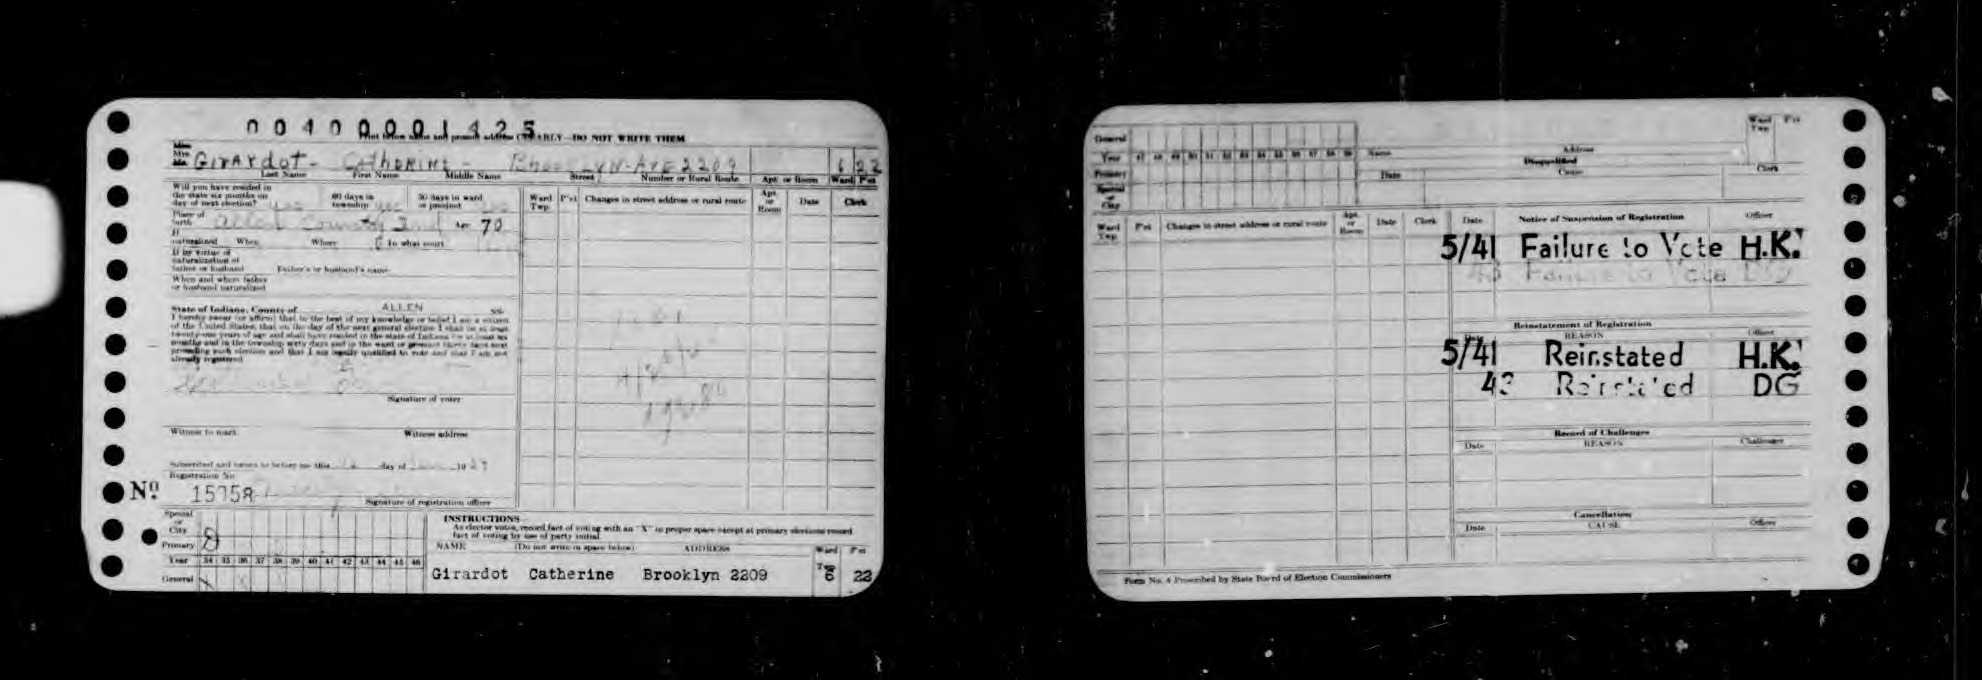 0040001425
Print below name and present address CLEARLY—DO NOT WRITE THEM
Mrs. GIRARdot - CATHERINE - BROOKLYN-AVE 2209 6 22
Last Name First Name Middle Name Street Number or Rural Route Apt. or Room Ward P'ct
Will you have resided in
the state six months on 60 days in 30 days in ward
day of next election? yes township yes or precinct
Place of
birth Allen County Ind Age 70
If
naturalized When Where In what court
If by virtue of
naturalization of
father or husband Father's or husband's name
When and where father
or husband naturalized
Ward Twp. P'ct Changes in street address or rural route Apt. or Room Date Clerk
State of Indiana, County of ALLEN SS:
I hereby swear (or affirm) that to the best of my knowledge or belief I am a citizen
of the United States, that on the day of the next general election I shall be at least
twenty-one years of age and shall have resided in the state of Indiana for at least six
months and in the township sixty days and in the ward or precinct thirty days next
preceding such election and that I am legally qualified to vote and that I am not
already registered.
Signature of voter
Witness to mark Witness address
Subscribed and sworn to before me this day of 19
Registration No.
Nº 15758
Signature of registration officer
Special or City
Primary
Year 34 35 36 37 38 39 40 41 42 43 44 45 46
General
INSTRUCTIONS
As elector votes, record fact of voting with an "X" in proper space except at primary elections record
fact of voting by use of party initial.
NAME (Do not write in space below) ADDRESS Ward Twp P'ct
Girardot Catherine Brooklyn 2209 6 22
General
Year 47 48 49 50 51 52 53 54 55 56 57 58 59
Primary
Special or City
Name Address Ward Twp. P'ct
Disqualified
Date Cause Clerk
Ward Twp. P'ct Changes in street address or rural route Apt. or Room Date Clerk
Date Notice of Suspension of Registration Officer
5/41 Failure to Vote H.K.
43 Failure to Vote
Reinstatement of Registration
Date REASON Officer
5/41 Reinstated H.K.
43 Reinstated DG
Record of Challenges
Date REASON Challenger
Cancellation
Date CAUSE Officer
Form No. 4 Prescribed by State Board of Election Commissioners